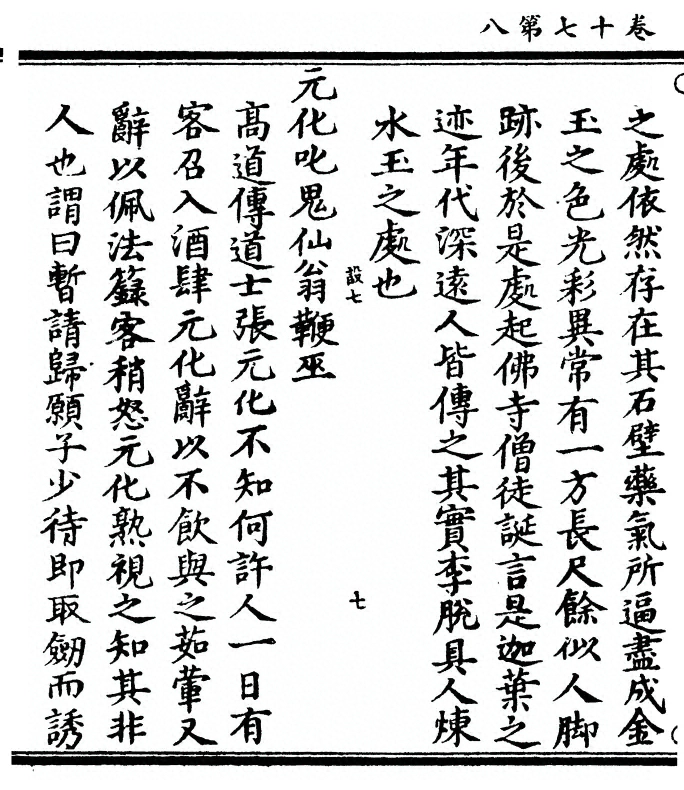 卷十七第八
之處依然存在其石壁藥氣所逼盡成金
玉之色光彩異常有一方長尺餘似人脚
跡後於是處起佛寺僧徒誕言是迦葉之
迹年代深遠人皆傳之其實李脫具人煉
水玉之處也
設七
七
元化叱鬼仙翁鞭巫
高道傳道士張元化不知何許人一日有
客召入酒肆元化辭以不飲與之茹葷又
辭以佩法籙客稍怒元化熟視之知其非
人也謂曰暫請歸願子少待即取劒而誘